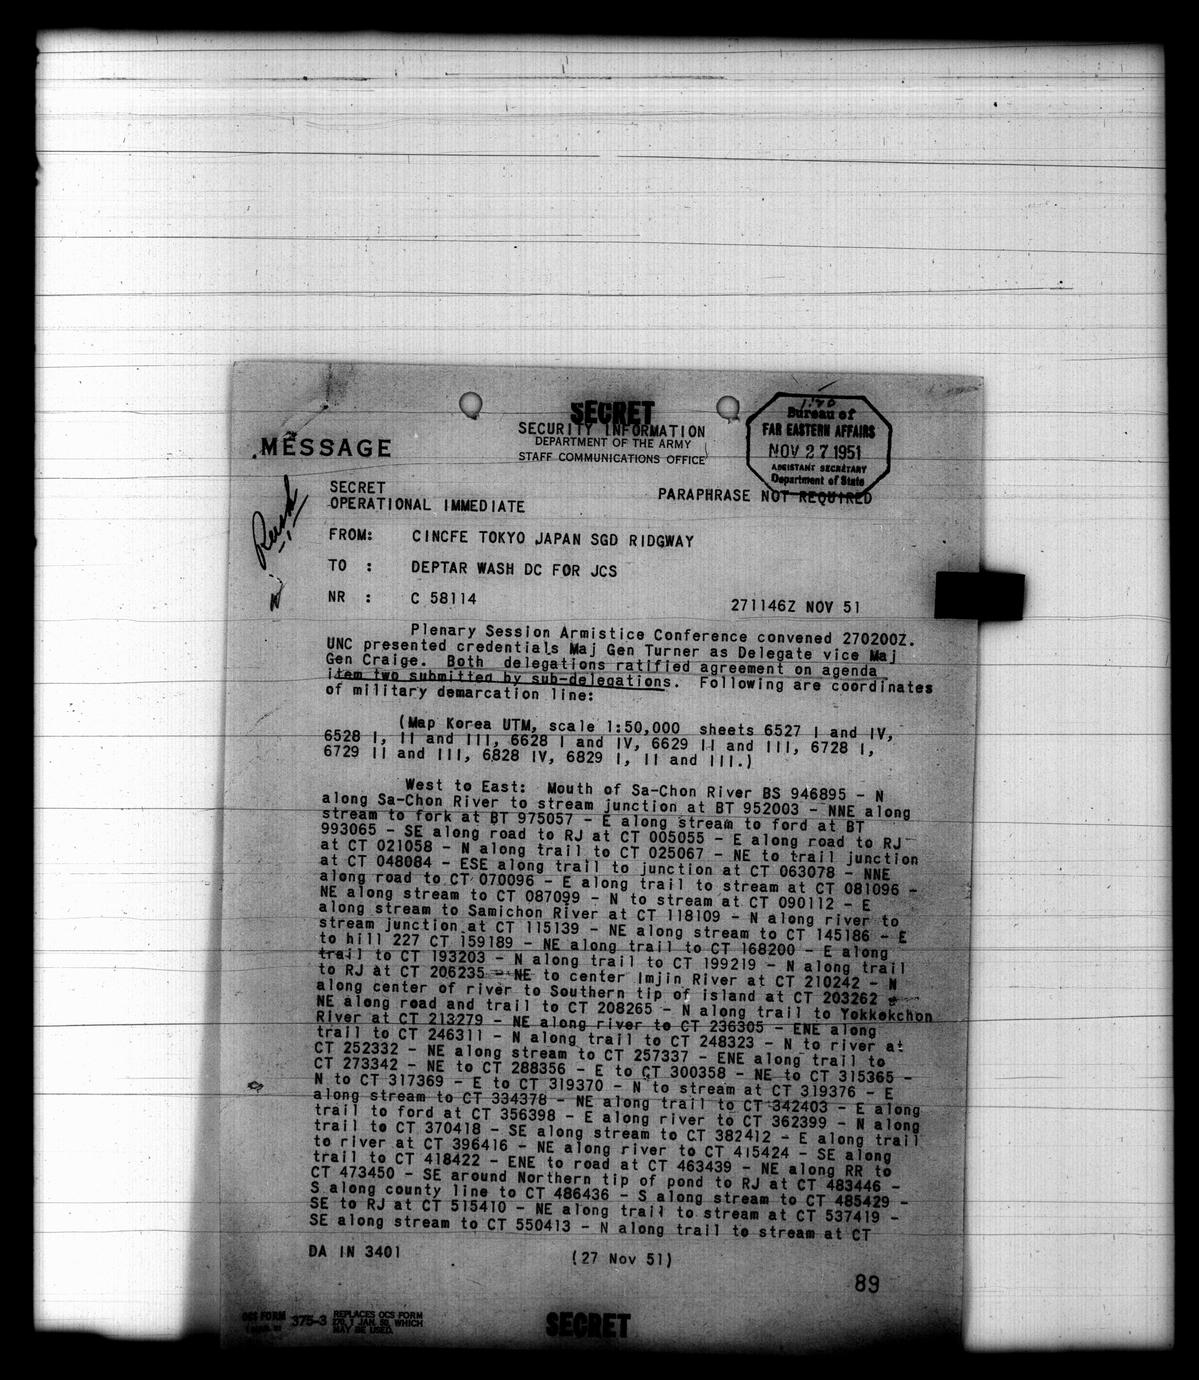 SECRET
SECURITY INFORMATION
DEPARTMENT OF THE ARMY
STAFF COMMUNICATIONS OFFICE
MESSAGE
Bureau of
FAR EASTERN AFFAIRS
NOV 27 1951
ASSISTANT SECRETARY
Department of State
Rush
SECRET
OPERATIONAL IMMEDIATE
PARAPHRASE NOT REQUIRED
FROM: CINCFE TOKYO JAPAN SGD RIDGWAY
TO : DEPTAR WASH DC FOR JCS
NR : C 58114
271146Z NOV 51
Plenary Session Armistice Conference convened 270200Z.
UNC presented credentials Maj Gen Turner as Delegate vice Maj
Gen Craige. Both delegations ratified agreement on agenda
item two submitted by sub-delegations. Following are coordinates
of military demarcation line:
(Map Korea UTM, scale 1:50,000 sheets 6527 I and IV,
6528 I, II and III, 6628 I and IV, 6629 II and III, 6728 I,
6729 II and III, 6828 IV, 6829 I, II and III.)
West to East: Mouth of Sa-Chon River BS 946895 - N
along Sa-Chon River to stream junction at BT 952003 - NNE along
stream to fork at BT 975057 - E along stream to ford at BT
993065 - SE along road to RJ at CT 005055 - E along road to RJ
at CT 021058 - N along trail to CT 025067 - NE to trail junction
at CT 048084 - ESE along trail to junction at CT 063078 - NNE
along road to CT 070096 - E along trail to stream at CT 081096 -
NE along stream to CT 087099 - N to stream at CT 090112 - E
along stream to Samichon River at CT 118109 - N along river to
stream junction at CT 115139 - NE along stream to CT 145186 - E
to hill 227 CT 159189 - NE along trail to CT 168200 - E along
trail to CT 193203 - N along trail to CT 199219 - N along trail
to RJ at CT 206235 - NE to center Imjin River at CT 210242 - N
along center of river to Southern tip of island at CT 203262 -
NE along road and trail to CT 208265 - N along trail to Yokkokchon
River at CT 213279 - NE along river to CT 236305 - ENE along
trail to CT 246311 - N along trail to CT 248323 - N to river at
CT 252332 - NE along stream to CT 257337 - ENE along trail to
CT 273342 - NE to CT 288356 - E to CT 300358 - NE to CT 315365 -
N to CT 317369 - E to CT 319370 - N to stream at CT 319376 - E
along stream to CT 334378 - NE along trail to CT 342403 - E along
trail to ford at CT 356398 - E along river to CT 362399 - N along
trail to CT 370418 - SE along stream to CT 382412 - E along trail
to river at CT 396416 - NE along river to CT 415424 - SE along
trail to CT 418422 - ENE to road at CT 463439 - NE along RR to
CT 473450 - SE around Northern tip of pond to RJ at CT 483446 -
S along county line to CT 486436 - S along stream to CT 485429 -
SE to RJ at CT 515410 - NE along trail to stream at CT 537419 -
SE along stream to CT 550413 - N along trail to stream at CT
DA IN 3401
(27 Nov 51)
89
OCS FORM 375-3 REPLACES OCS FORM
JAN. 50, WHICH
MAY BE USED.
SECRET